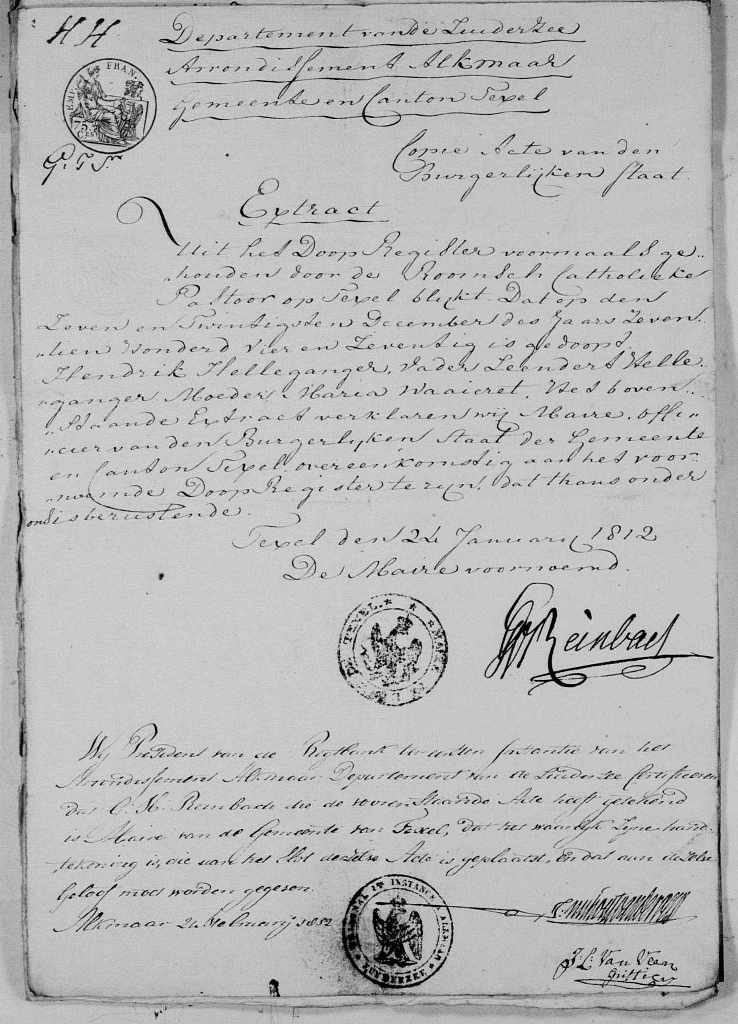 HH
Departement van de Zuiderzee
Arrondissement Alkmaar
Gemeente en Canton Texel
EMP. FRAN.
Copie Acte van den
Burgerlijken Staat
Extract
Uit het Doop Register voormaals ge„
„houden door de Roomsch Catholieke
Pastoor op Texel blijkt. Dat op den
Zeven en Twintigsten December des Jaars Zeven„
„tien Honderd Vier en Zeventig is gedoopt,
Hendrik Helleganger, Vader Leendert Helle„
„ganger Moeder Maria Waaieret. Het boven„
„staande Extract verklaren wij Maire, offi„
„cier van den Burgerlijken Staat der Gemeente
en Canton Texel, overeenkomstig aan het voor„
„noemde Doop Register te zijn, dat thans onder
ons is berustende.
Texel den 24 Januarij 1812
De Maire voornoemd.
TEXEL
Reinbach
Wij President van de Regtbank ter eerster Instantie van het
Arrondissement Alkmaar Departement van de Zuiderzee Certificeren
dat C. K. Reinbach die de vorenstaande Acte heeft getekend
is Maire van de Gemeente van Texel, dat het waarlijk Zijne hand„
„tekening is, die aan het Slot dezelve Acte is geplaatst, en dat aan dezelve
Geloof moet worden gegeven.
Alkmaar
INSTANCE
ZUYDERZEE
J. L. Van Veen
Griffier